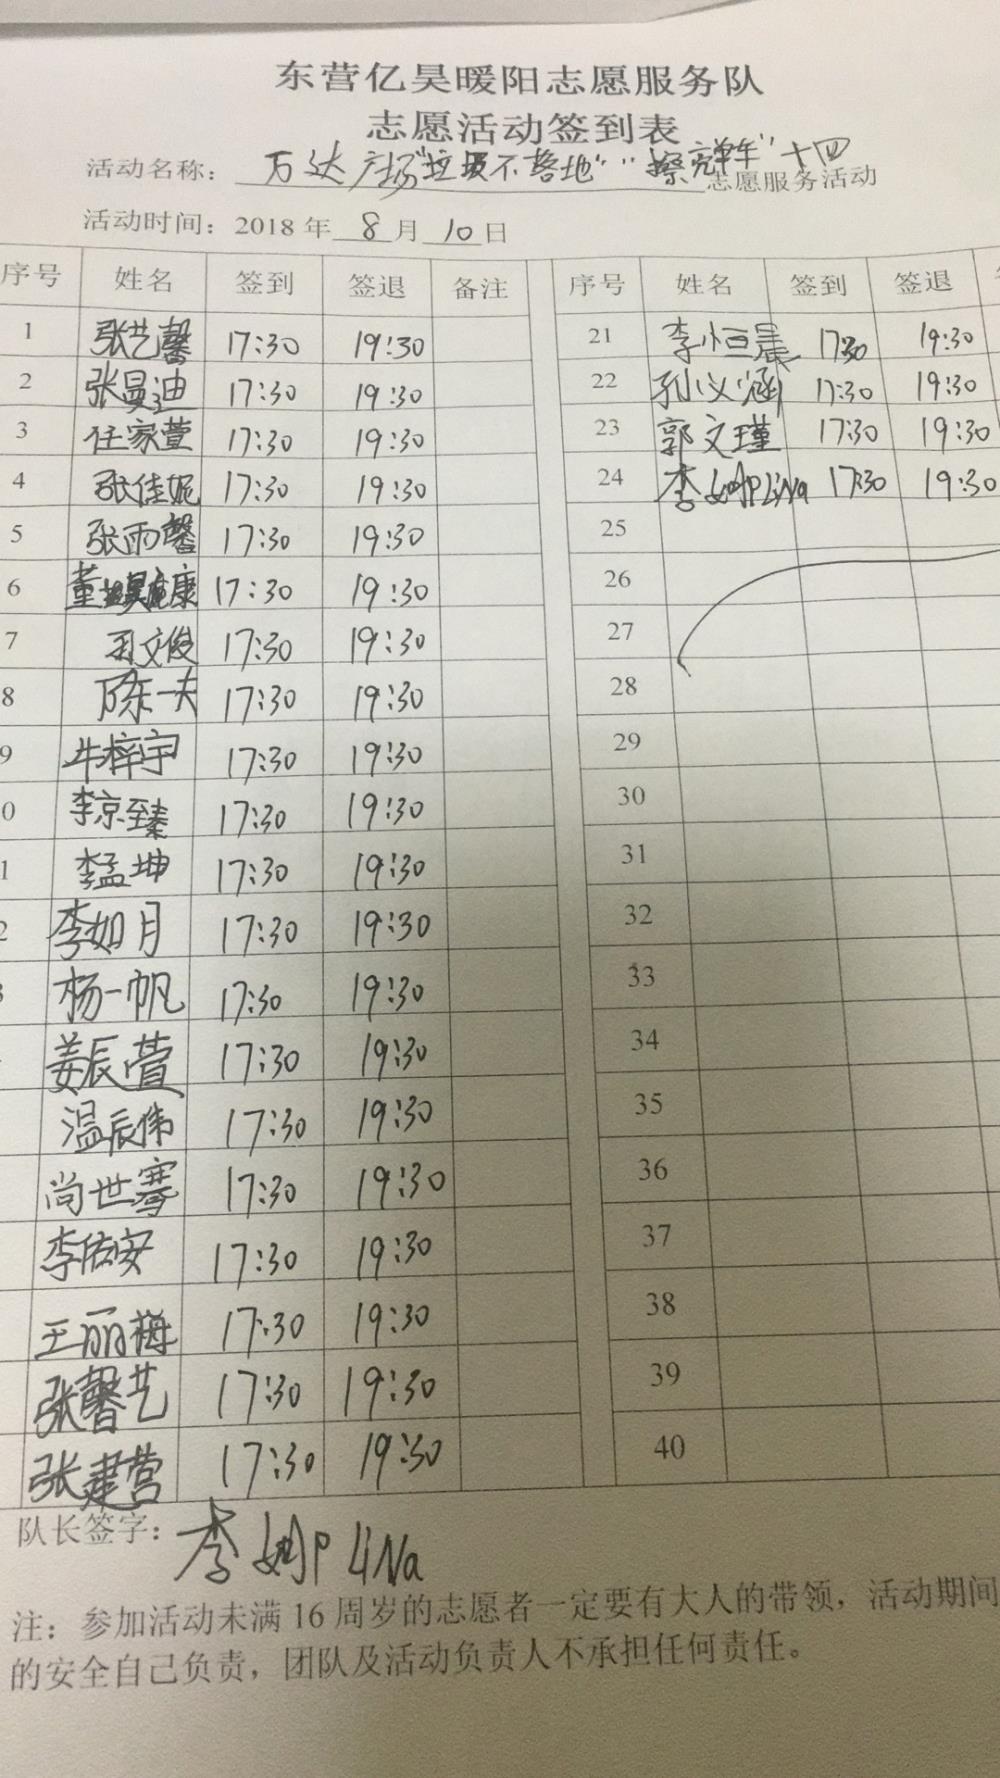 东营亿昊暖阳志愿服务队
志愿活动签到表
活动名称：万达广场"垃圾不落地""擦亮单车"十四志愿服务活动
活动时间：2018年8月10日
序号 姓名 签到 签退 备注 序号 姓名 签到 签退
1 张艺馨 17:30 19:30 21 李恒晨 17:30 19:30
2 张曼迪 17:30 19:30 22 孙义涵 17:30 19:30
3 任家萱 17:30 19:30 23 郭文瑾 17:30 19:30
4 张佳妮 17:30 19:30 24 李娜LiNa 17:30 19:30
5 张雨馨 17:30 19:30 25
6 董 康 17:30 19:30 26
7 文俊 17:30 19:30 27
8 陈一夫 17:30 19:30 28
9 牛梓宇 17:30 19:30 29
0 李京臻 17:30 19:30 30
1 李孟坤 17:30 19:30 31
2 李如月 17:30 19:30 32
3 杨一帆 17:30 19:30 33
姜辰萱 17:30 19:30 34
温辰伟 17:30 19:30 35
尚世骞 17:30 19:30 36
李佑安 17:30 19:30 37
王丽梅 17:30 19:30 38
张馨艺 17:30 19:30 39
张建营 17:30 19:30 40
队长签字：李娜LiNa
注：参加活动未满16周岁的志愿者一定要有大人的带领，活动期间
的安全自己负责，团队及活动负责人不承担任何责任。